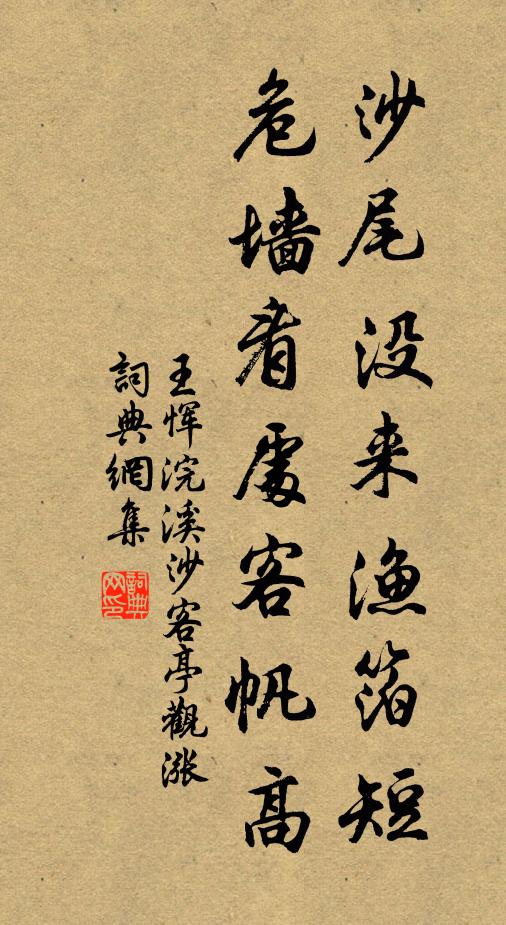 沙尾没来渔箔短
危墙看处客帆高
王恽浣溪沙客亭觀漲
詞典網集
詞典网印